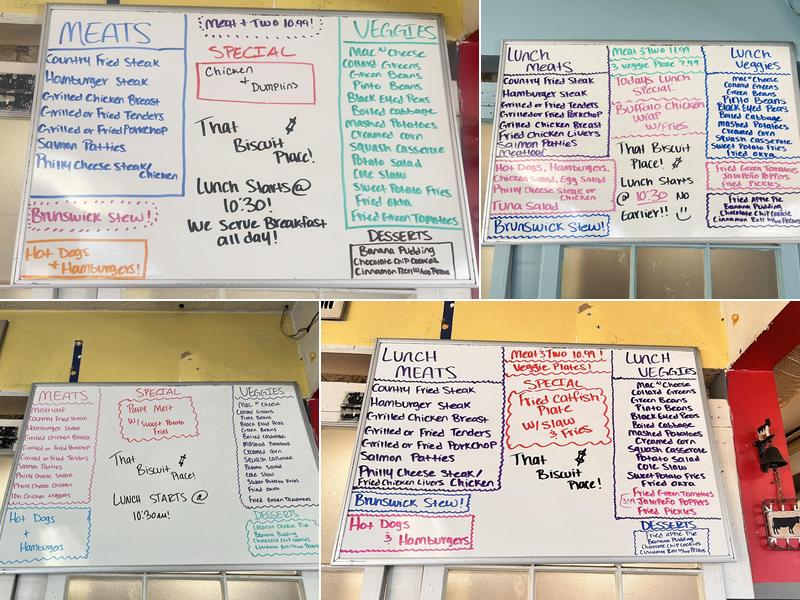 MEATS
Country Fried Steak
Hamburger Steak
Grilled Chicken Breast
Grilled or Fried Tenders
Grilled or Fried Porkchop
Salmon Patties
Philly Cheese Steak/
Chicken
Brunswick Stew!
Hot Dogs
+ Hamburgers!
Meat + Two 10.99!
SPECIAL
Chicken
+ Dumplins
That
Biscuit
Place!
Lunch Starts @
10:30!
We Serve Breakfast
all day!
VEGGIES
Mac N Cheese
Collard Greens
Green Beans
Pinto Beans
Black Eyed Peas
Boiled Cabbage
Mashed Potatoes
Creamed Corn
Squash Casserole
Potato Salad
Cole Slaw
Sweet Potato Fries
Fried Okra
Fried Green Tomatoes
DESSERTS
Banana Pudding
Chocolate Chip Cookies
Cinnamon Roll w/
Lunch
Meats
Country Fried Steak
Hamburger Steak
Grilled or Fried Tenders
Grilled or Fried Porkchop
Grilled Chicken Breast
Fried Chicken Livers
Salmon Patties
Meatloaf
Hot Dogs, Hamburgers,
Chicken Salad, Egg Salad
Philly Cheese Steak or
Chicken
Tuna Salad
Brunswick Stew!
Meat & Two 11.99
3 Veggie Plate 7.99
Todays Lunch
Special:
Buffalo Chicken
Wrap
w/Fries
That Biscuit
Place!
Lunch Starts
@ 10:30 No
Earlier!!
Lunch
Veggies
Mac N Cheese
Collard Greens
Green Beans
Pinto Beans
Black Eyed Peas
Boiled Cabbage
Mashed Potatoes
Creamed Corn
Squash Casserole
Sweet Potato Fries
Fried Okra
Fried Green Tomatoes
Jalapeño Poppers
Fried Pickles
Fried Apple Pie
Banana Pudding
Chocolate Chip Cookie
Cinnamon Roll w/
MEATS
Meatloaf
Country Fried Steak
Hamburger Steak
Grilled Chicken Breast
Grilled or Fried Porkchop
Grilled or Fried Tenders
Salmon Patties
Philly Cheese Steak
Philly Cheese Chicken
Chicken Nuggets
Hot Dogs
+
Hamburgers
SPECIAL
Patty Melt
w/ Sweet Potato
Fries
That
Biscuit
Place!
LUNCH STARTS @
10:30am!
VEGGIES
Mac N Cheese
Collard Greens
Green Beans
Pinto Beans
Black Eyed Peas
Boiled Cabbage
Mashed Potatoes
Creamed Corn
Squash Casserole
Potato Salad
Cole Slaw
Sweet Potato Fries
Fried Okra
Fried Green Tomatoes
DESSERTS
Pie
Banana Pudding
Chocolate Chip Cookies
Cinnamon Roll w/
LUNCH
MEATS
Country Fried Steak
Hamburger Steak
Grilled Chicken Breast
Grilled or Fried Tenders
Grilled or Fried Porkchop
Salmon Patties
Philly Cheese Steak/
Chicken
Fried Chicken Livers
Brunswick Stew!
Hot Dogs
& Hamburgers
Meat & Two 10.99!
Veggie Plates!
SPECIAL
Fried Catfish
Plate
w/ Slaw
& Fries
That
Biscuit
Place!
LUNCH
VEGGIES
Mac N Cheese
Collard Greens
Green Beans
Pinto Beans
Black Eyed Peas
Boiled Cabbage
Mashed Potatoes
Creamed Corn
Squash Casserole
Potato Salad
Cole Slaw
Sweet Potato Fries
Fried Okra
Fried Green Tomatoes
Jalapeño Poppers
Fried Pickles
DESSERTS
Fried Apple Pie
Banana Pudding
Chocolate Chip Cookies
Cinnamon Roll w/